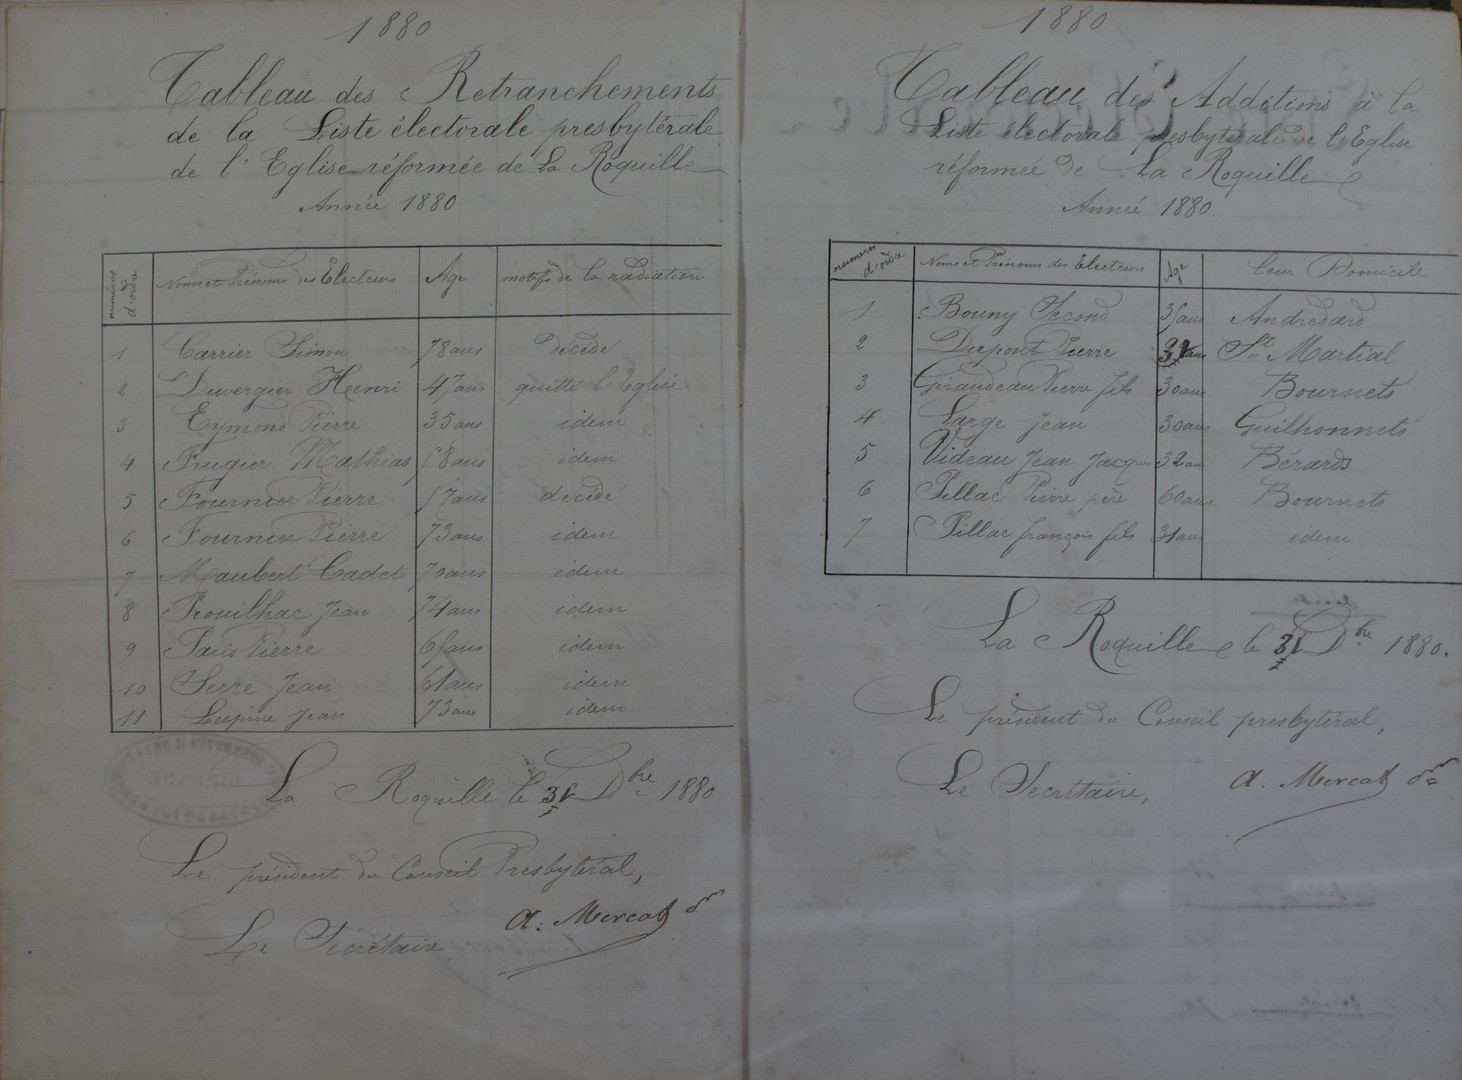 1880
Tableau des Retranchements
de la Liste électorale presbytérale
de l'Eglise réformée de La Roquille
Année 1880
numéros d'ordre | Noms et Prénoms des Electeurs | Age | motifs de la radiation
1 | Carrier Simon | 78 ans | décédé
2 | Duvergier Henri | 47 ans | quitté l'Eglise
3 | Eymond Pierre | 35 ans | idem
4 | Frugier Mathias | 58 ans | idem
5 | Fournier Pierre | 57 ans | décédé
6 | Fournier Pierre | 73 ans | idem
7 | Maubert Cadet | 70 ans | idem
8 | Prouilhac Jean | 74 ans | idem
9 | Paris Pierre | ans | idem
10 | Serre Jean | 61 ans | idem
11 | Lespine Jean | 73 ans | idem
La Roquille le 31 Dbre 1880
Le président du Conseil Presbytéral,
A. Mercat
Le Secrétaire,
1880
Tableau des Additions à la
Liste électorale presbytérale de l'Eglise
réformée de La Roquille
Année 1880.
numéros d'ordre | Noms et Prénoms des Electeurs | Age | Leur Domicile
1 | Bouny Second | 35 ans | Andredard
2 | Dupont Pierre | ans | St Martial
3 | Giraudeau Pierre fils | 30 ans | Bournets
4 | Large Jean | 30 ans | Guilhonnets
5 | Videau Jean Jacques | 32 ans | Bérards
6 | Pillac Pierre père | 60 ans | Bournets
7 | Pillac françois fils | 31 ans | idem
La Roquille le 31 Dbre 1880.
Le président du Conseil presbytéral,
A. Mercat
Le Secrétaire,